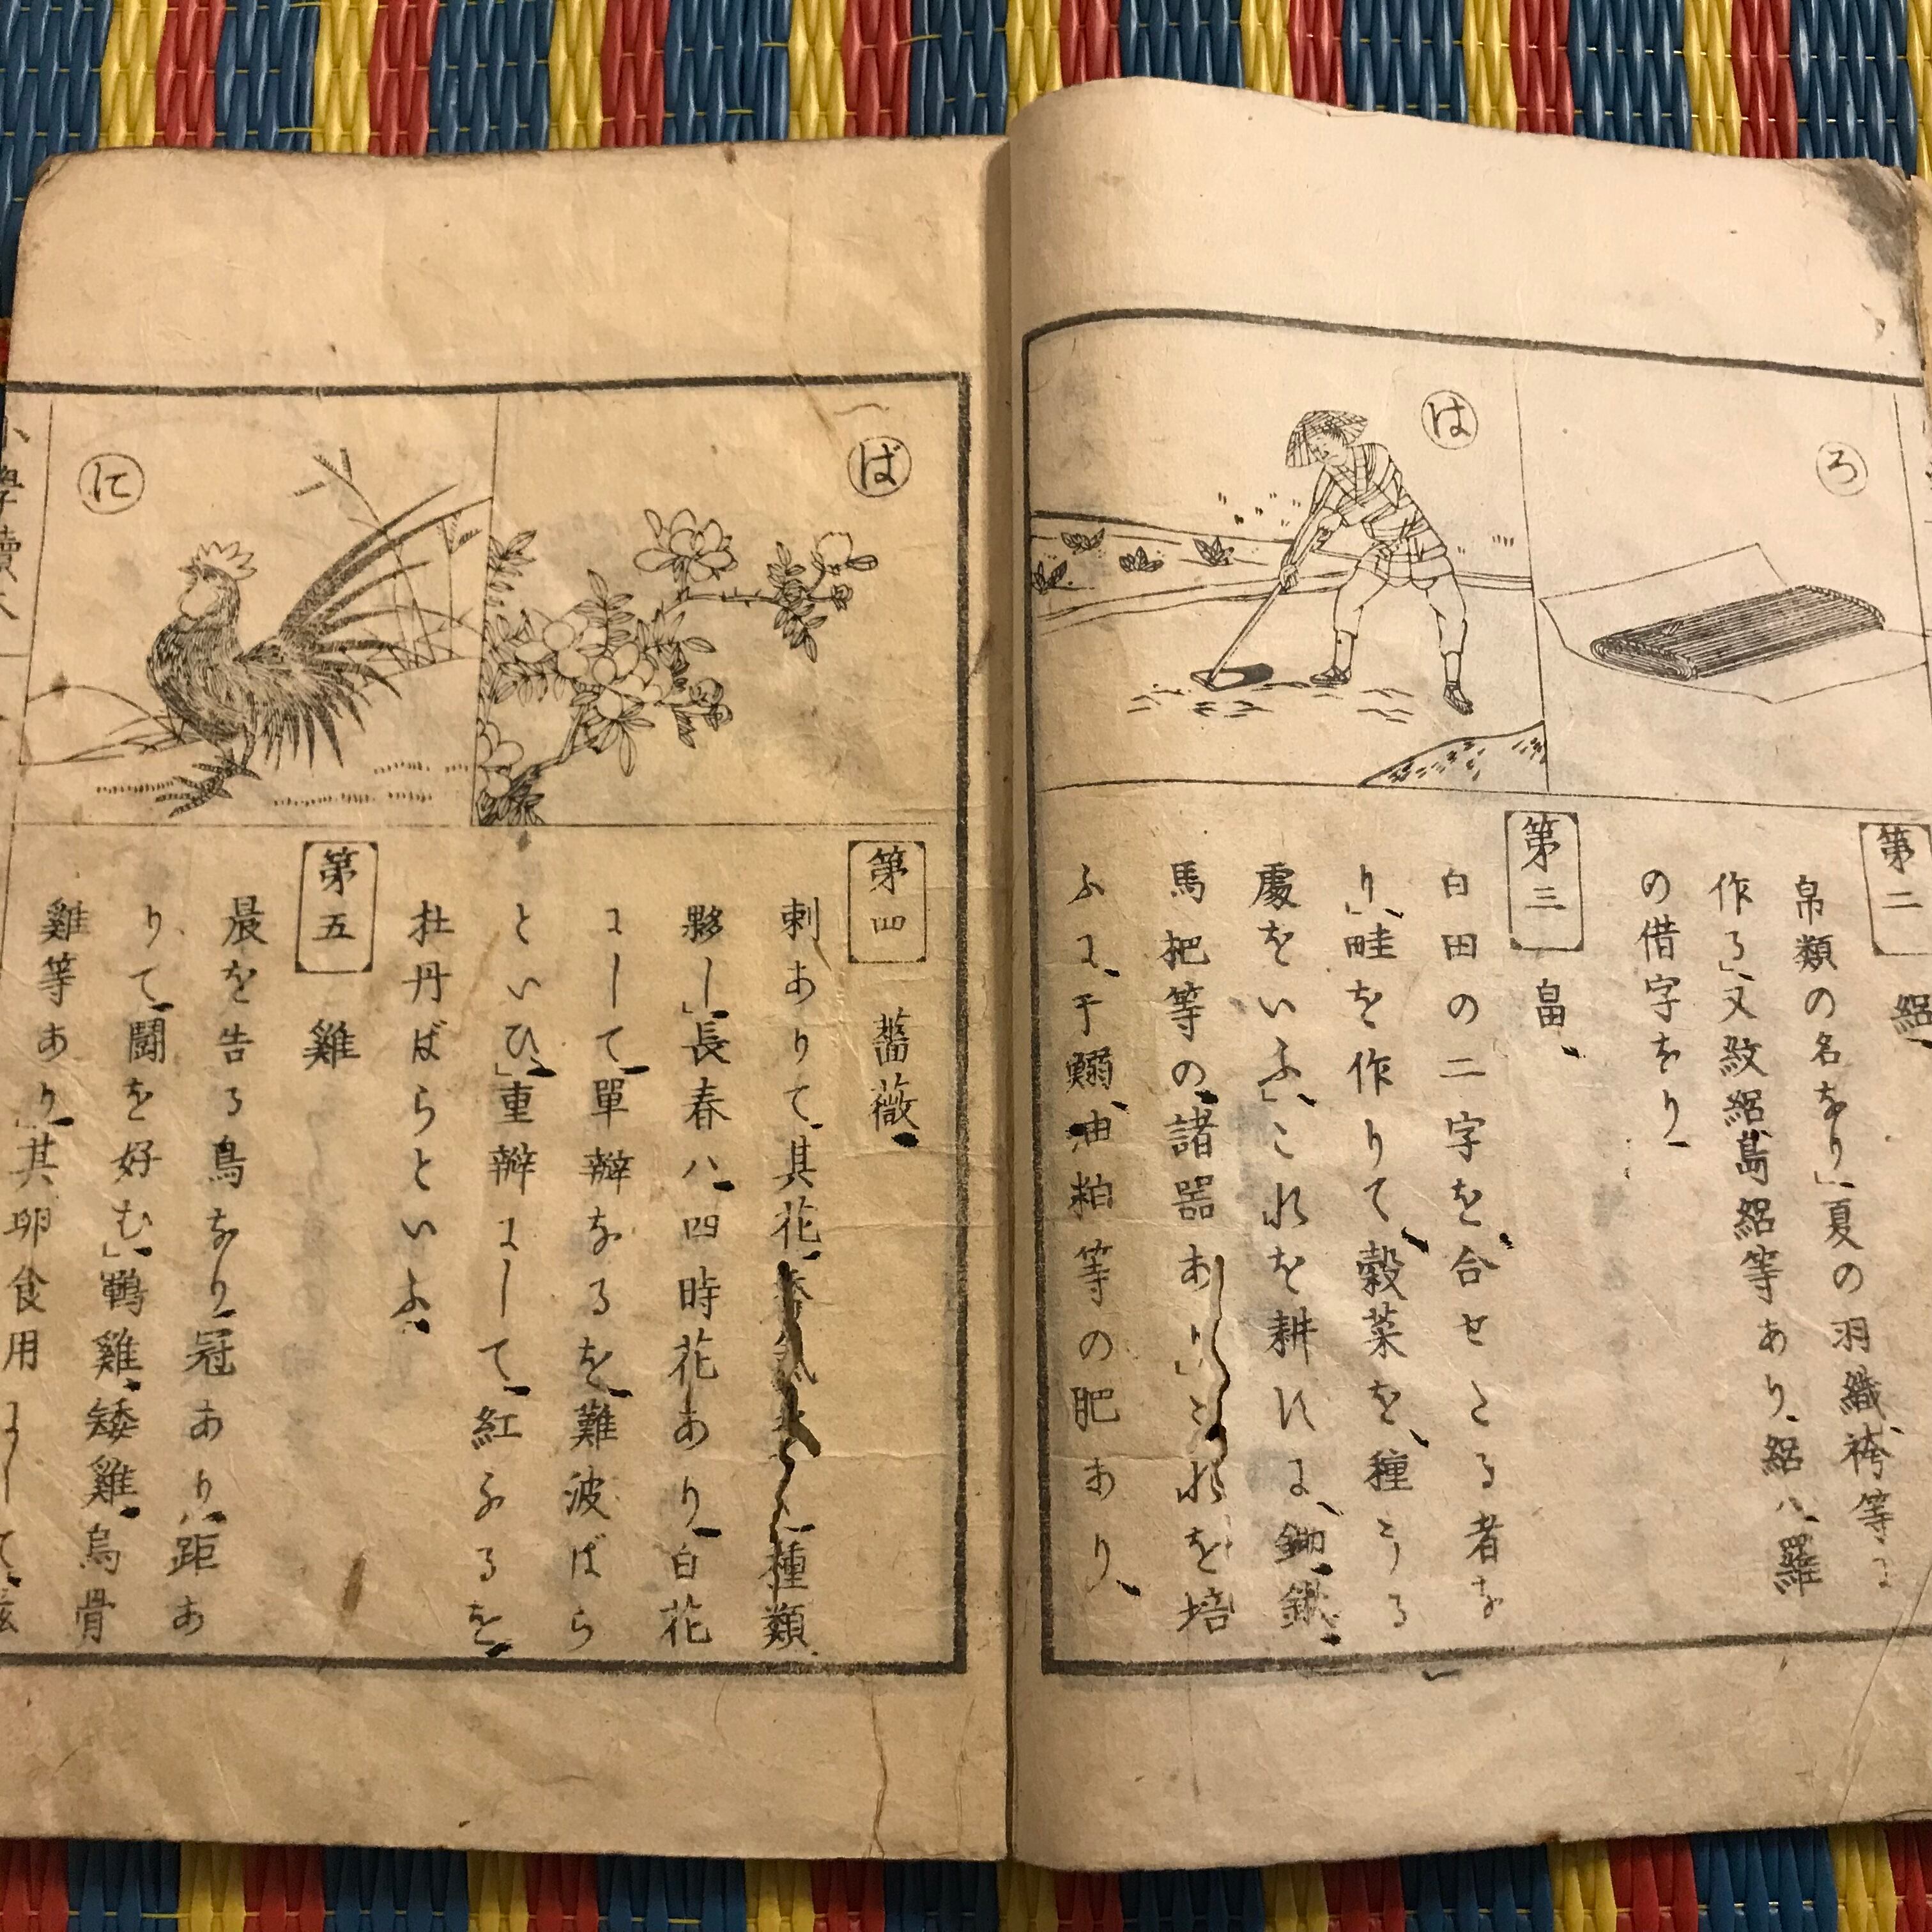 ろ
は
第二 絽
帛類の名なり」夏の羽織袴等に
作る」又紋絽島絽等あり絽ハ羅
の借字なり
第三 畠
白田の二字を合せたる者な
り」畦を作りて穀菜を種うる
處をいふ」これを耕にに鋤鍬
馬把等の諸器あり」これを培
ふに干鰯油粕等の肥あり
ば
に
第四 薔薇
刺ありて其花 種類
夥し」長春ハ四時花あり白花
にして單瓣なるを難波ばら
といひ」重瓣にして紅なるを
杜丹ばらといふ
第五 雞
晨を告る鳥なり冠あり距あ
りて鬪を好む」鶤雞矮雞烏骨
雞等あり其卵食用にして
小學讀本